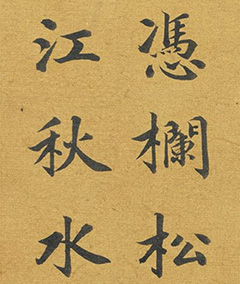 憑欄松
江秋水